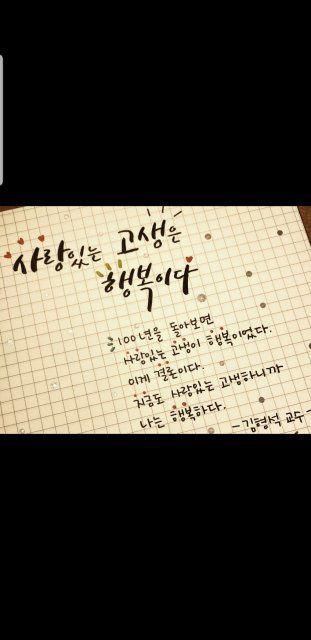 사랑있는 고생은
행복이다
100년을 돌아보면
사랑있는 고생이 행복이었다.
이게 결론이다.
지금도 사랑있는 고생하니까
나는 행복하다.
- 김형석 교수 -